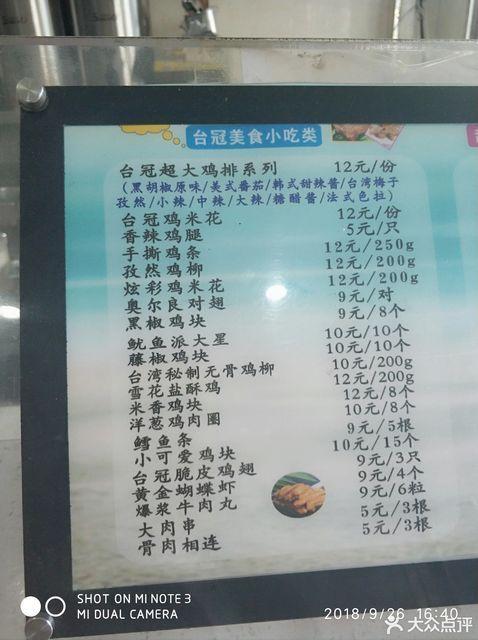 台冠美食小吃类
台冠超大鸡排系列 12元/份
(黑胡椒原味/美式番茄/韩式甜辣酱/台湾梅子
孜然/小辣/中辣/大辣/糖醋酱/法式色拉)
台冠鸡米花 12元/份
香辣鸡腿 5元/只
手撕鸡条 12元/250g
孜然鸡柳 12元/200g
炫彩鸡米花 12元/200g
奥尔良对翅 9元/对
黑椒鸡块 9元/8个
鱿鱼派大星 10元/10个
藤椒鸡块 10元/10个
台湾秘制无骨鸡柳 10元/200g
雪花盐酥鸡 12元/200g
米香鸡块 12元/8个
洋葱鸡肉圈 10元/8个
鳕鱼条 9元/5根
小可爱鸡块 10元/15个
台冠脆皮鸡翅 9元/3只
黄金蝴蝶虾 9元/4个
爆浆牛肉丸 9元/6粒
大肉串 5元/3根
骨肉相连 5元/3根
SHOT ON MI NOTE 3
MI DUAL CAMERA
2018/9/26 16:40
大众点评